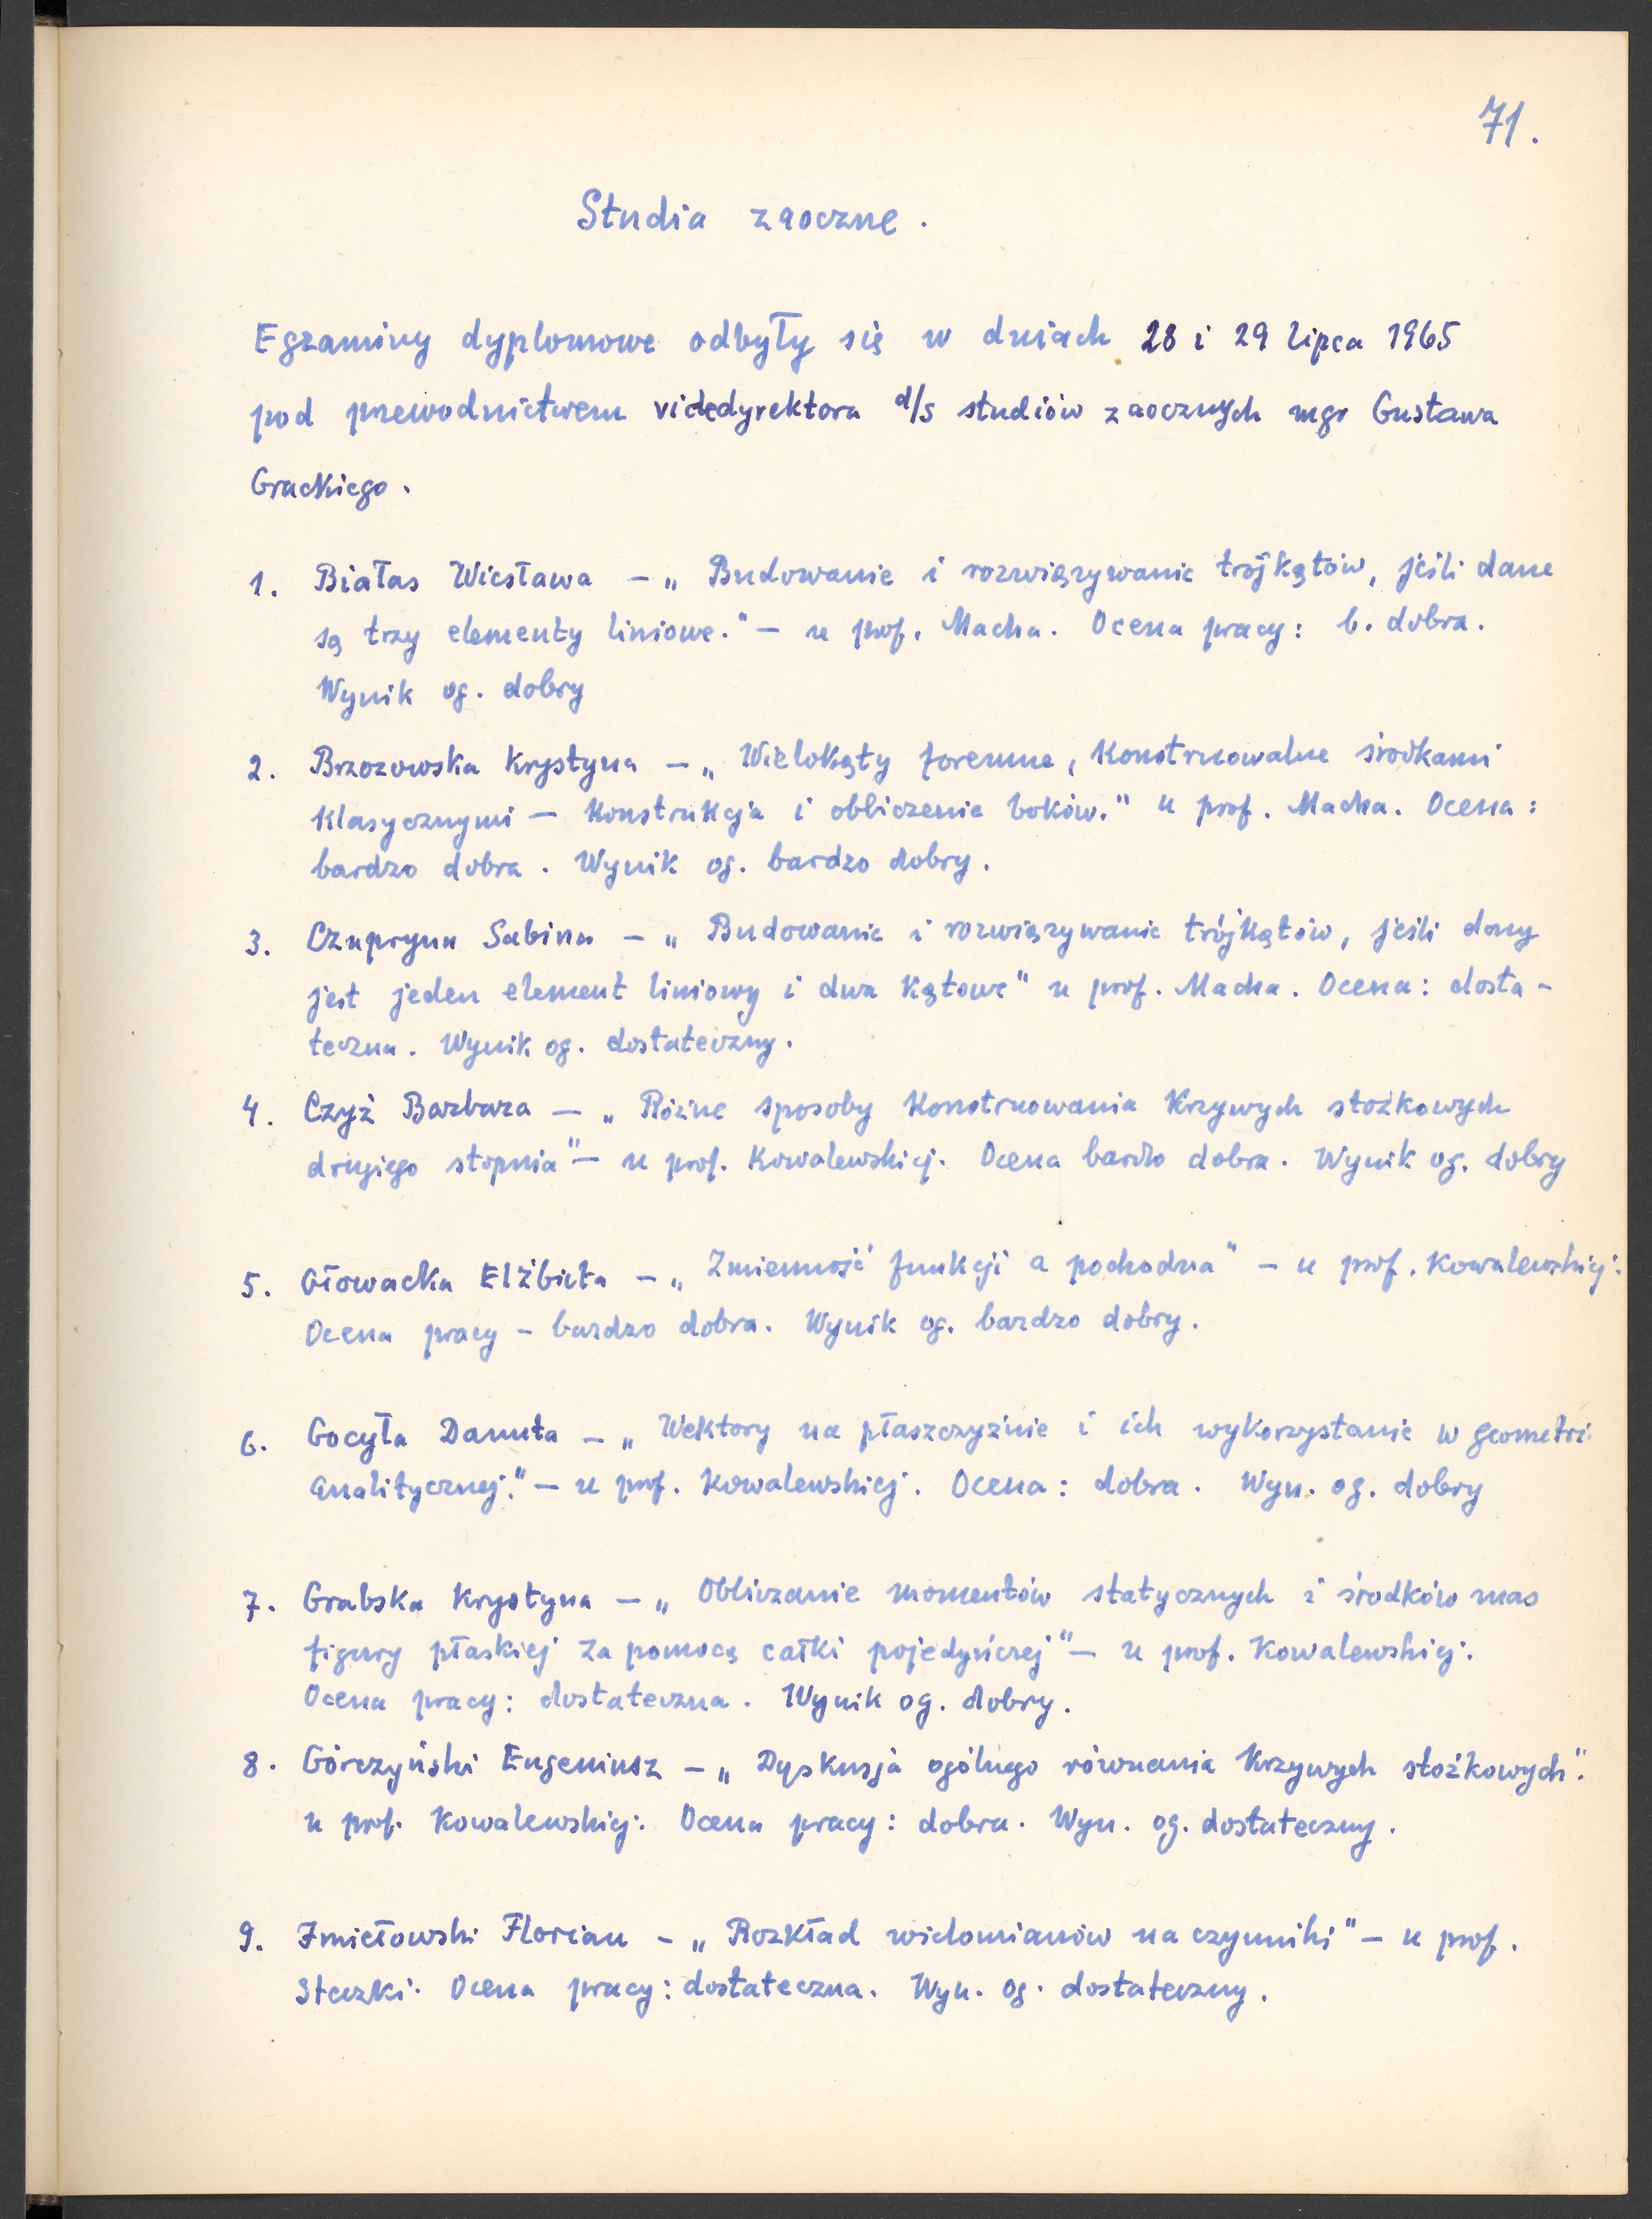 71.
Studia zaoczne.
Egzaminy dyplomowe odbyły się w dniach 28 i 29 lipca 1965
pod przewodnictwem vicedyrektora d/s studiów zaocznych mgr Gustawa
Grackiego.
1. Białas Wiesława – „Budowanie i rozwiązywanie trójkątów, jeśli dane
są trzy elementy liniowe." – u prof. Macha. Ocena pracy: b. dobra.
Wynik og. dobry
2. Brzozowska Krystyna – „Wielokąty foremne, konstruowalne środkami
klasycznymi – konstrukcja i obliczenie boków." u prof. Macha. Ocena:
bardzo dobra. Wynik og. bardzo dobry.
3. Czupryna Sabina – „Budowanie i rozwiązywanie trójkątów, jeśli dany
jest jeden element liniowy i dwa kątowe" u prof. Macha. Ocena: dosta-
teczna. Wynik og. dostateczny.
4. Czyż Barbara – „Różne sposoby konstruowania krzywych stożkowych
drugiego stopnia" – u prof. Kowalewskiej. Ocena bardzo dobra. Wynik og. dobry
5. Głowacka Elżbieta – „Zmienność funkcji a pochodna" – u prof. Kowalewskiej.
Ocena pracy – bardzo dobra. Wynik og. bardzo dobry.
6. Gocyła Danuta – „Wektory na płaszczyźnie i ich wykorzystanie w geometri
analitycznej." – u prof. Kowalewskiej. Ocena: dobra. Wyn. og. dobry
7. Grabska Krystyna – „Obliczanie momentów statycznych i środków mas
figury płaskiej za pomocą całki pojedyńczej" – u prof. Kowalewskiej.
Ocena pracy: dostateczna. Wynik og. dobry.
8. Górczyński Eugeniusz – „Dyskusja ogólnego równania krzywych stożkowych".
u prof. Kowalewskiej. Ocena pracy: dobra. Wyn. og. dostateczny.
9. Imiełowski Florian – „Rozkład wielomianów na czynniki" – u prof.
Steczki. Ocena pracy: dostateczna. Wyn. og. dostateczny.